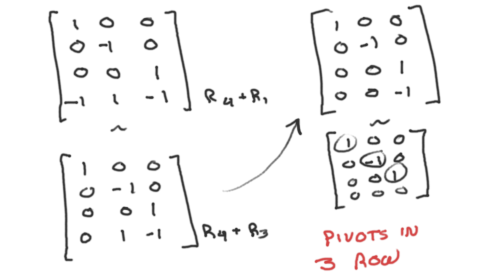 1 0 0
0 -1 0
0 0 1
-1 1 -1 R4+R1
~
1 0 0
0 -1 0
0 0 1
0 1 -1 R4+R3
1 0 0
0 -1 0
0 0 1
0 0 -1
~
1 0 0
0 -1 0
0 0 1
0 0 0
PIVOTS IN
3 ROW